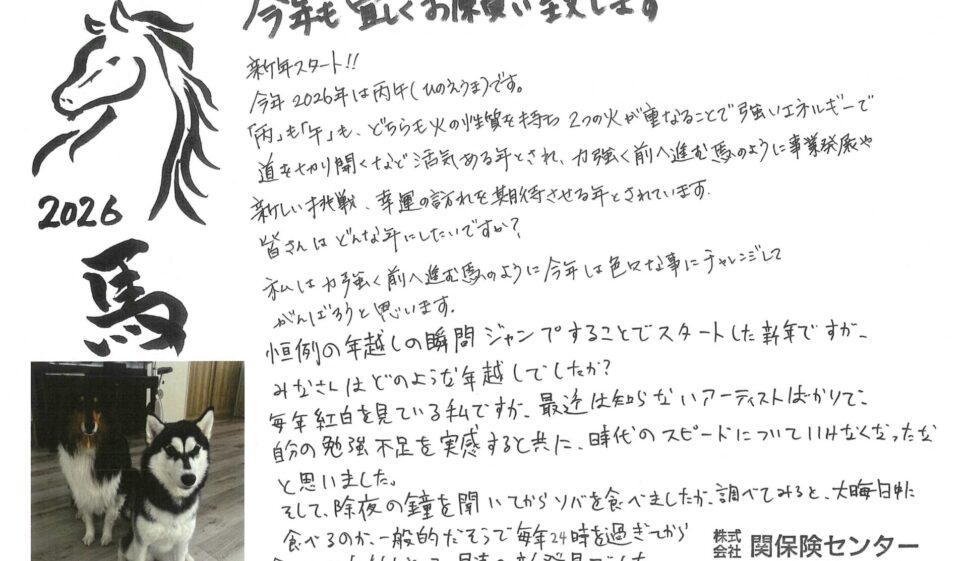 今年も宜しくお願い致します
新年スタート!!
今年2026年は丙午(ひのえうま)です。
「丙」も「午」も、どちらも火の性質を持ち2つの火が重なることで強いエネルギーで
道を切り開くなど活気ある年とされ、力強く前へ進む馬のように事業発展や
新しい挑戦、幸運の訪れを期待させる年とされています.
皆さんはどんな年にしたいですか?
私は力強く前へ進む馬のように今年は色々な事にチャレンジして
がんばろうと思います.
恒例の年越しの瞬間ジャンプすることでスタートした新年ですが、
みなさんはどのような年越しでしたか?
毎年紅白を見ている私ですが、最近は知らないアーティストばかりで、
自分の勉強不足を実感すると共に、時代のスピードについていけなくなったな
と思いました。
そして、除夜の鐘を聞いてからソバを食べましたが、調べてみると、大晦日中に
食べるのが一般的だそうで毎年24時を過ぎてから
2026
馬
株式会社 関保険センター